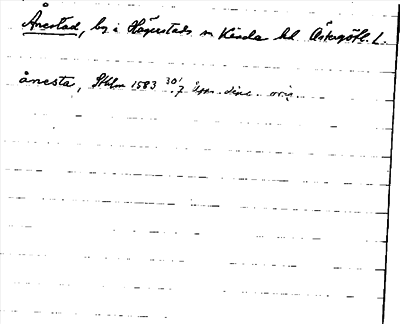 Ånestad, by i Hägerstads sn Kinda hd Östergötl. L.
ånesta, Sthlm 1583 30/7 orig.